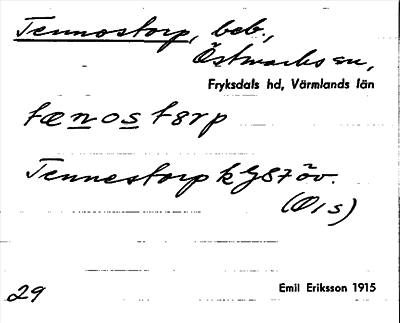 Tennostorp, beb.,
Östmarks sn,
Fryksdals hd, Värmlands län
tænostørp
Tennestorp kGS7öv.
(Ois)
29
Emil Eriksson 1915